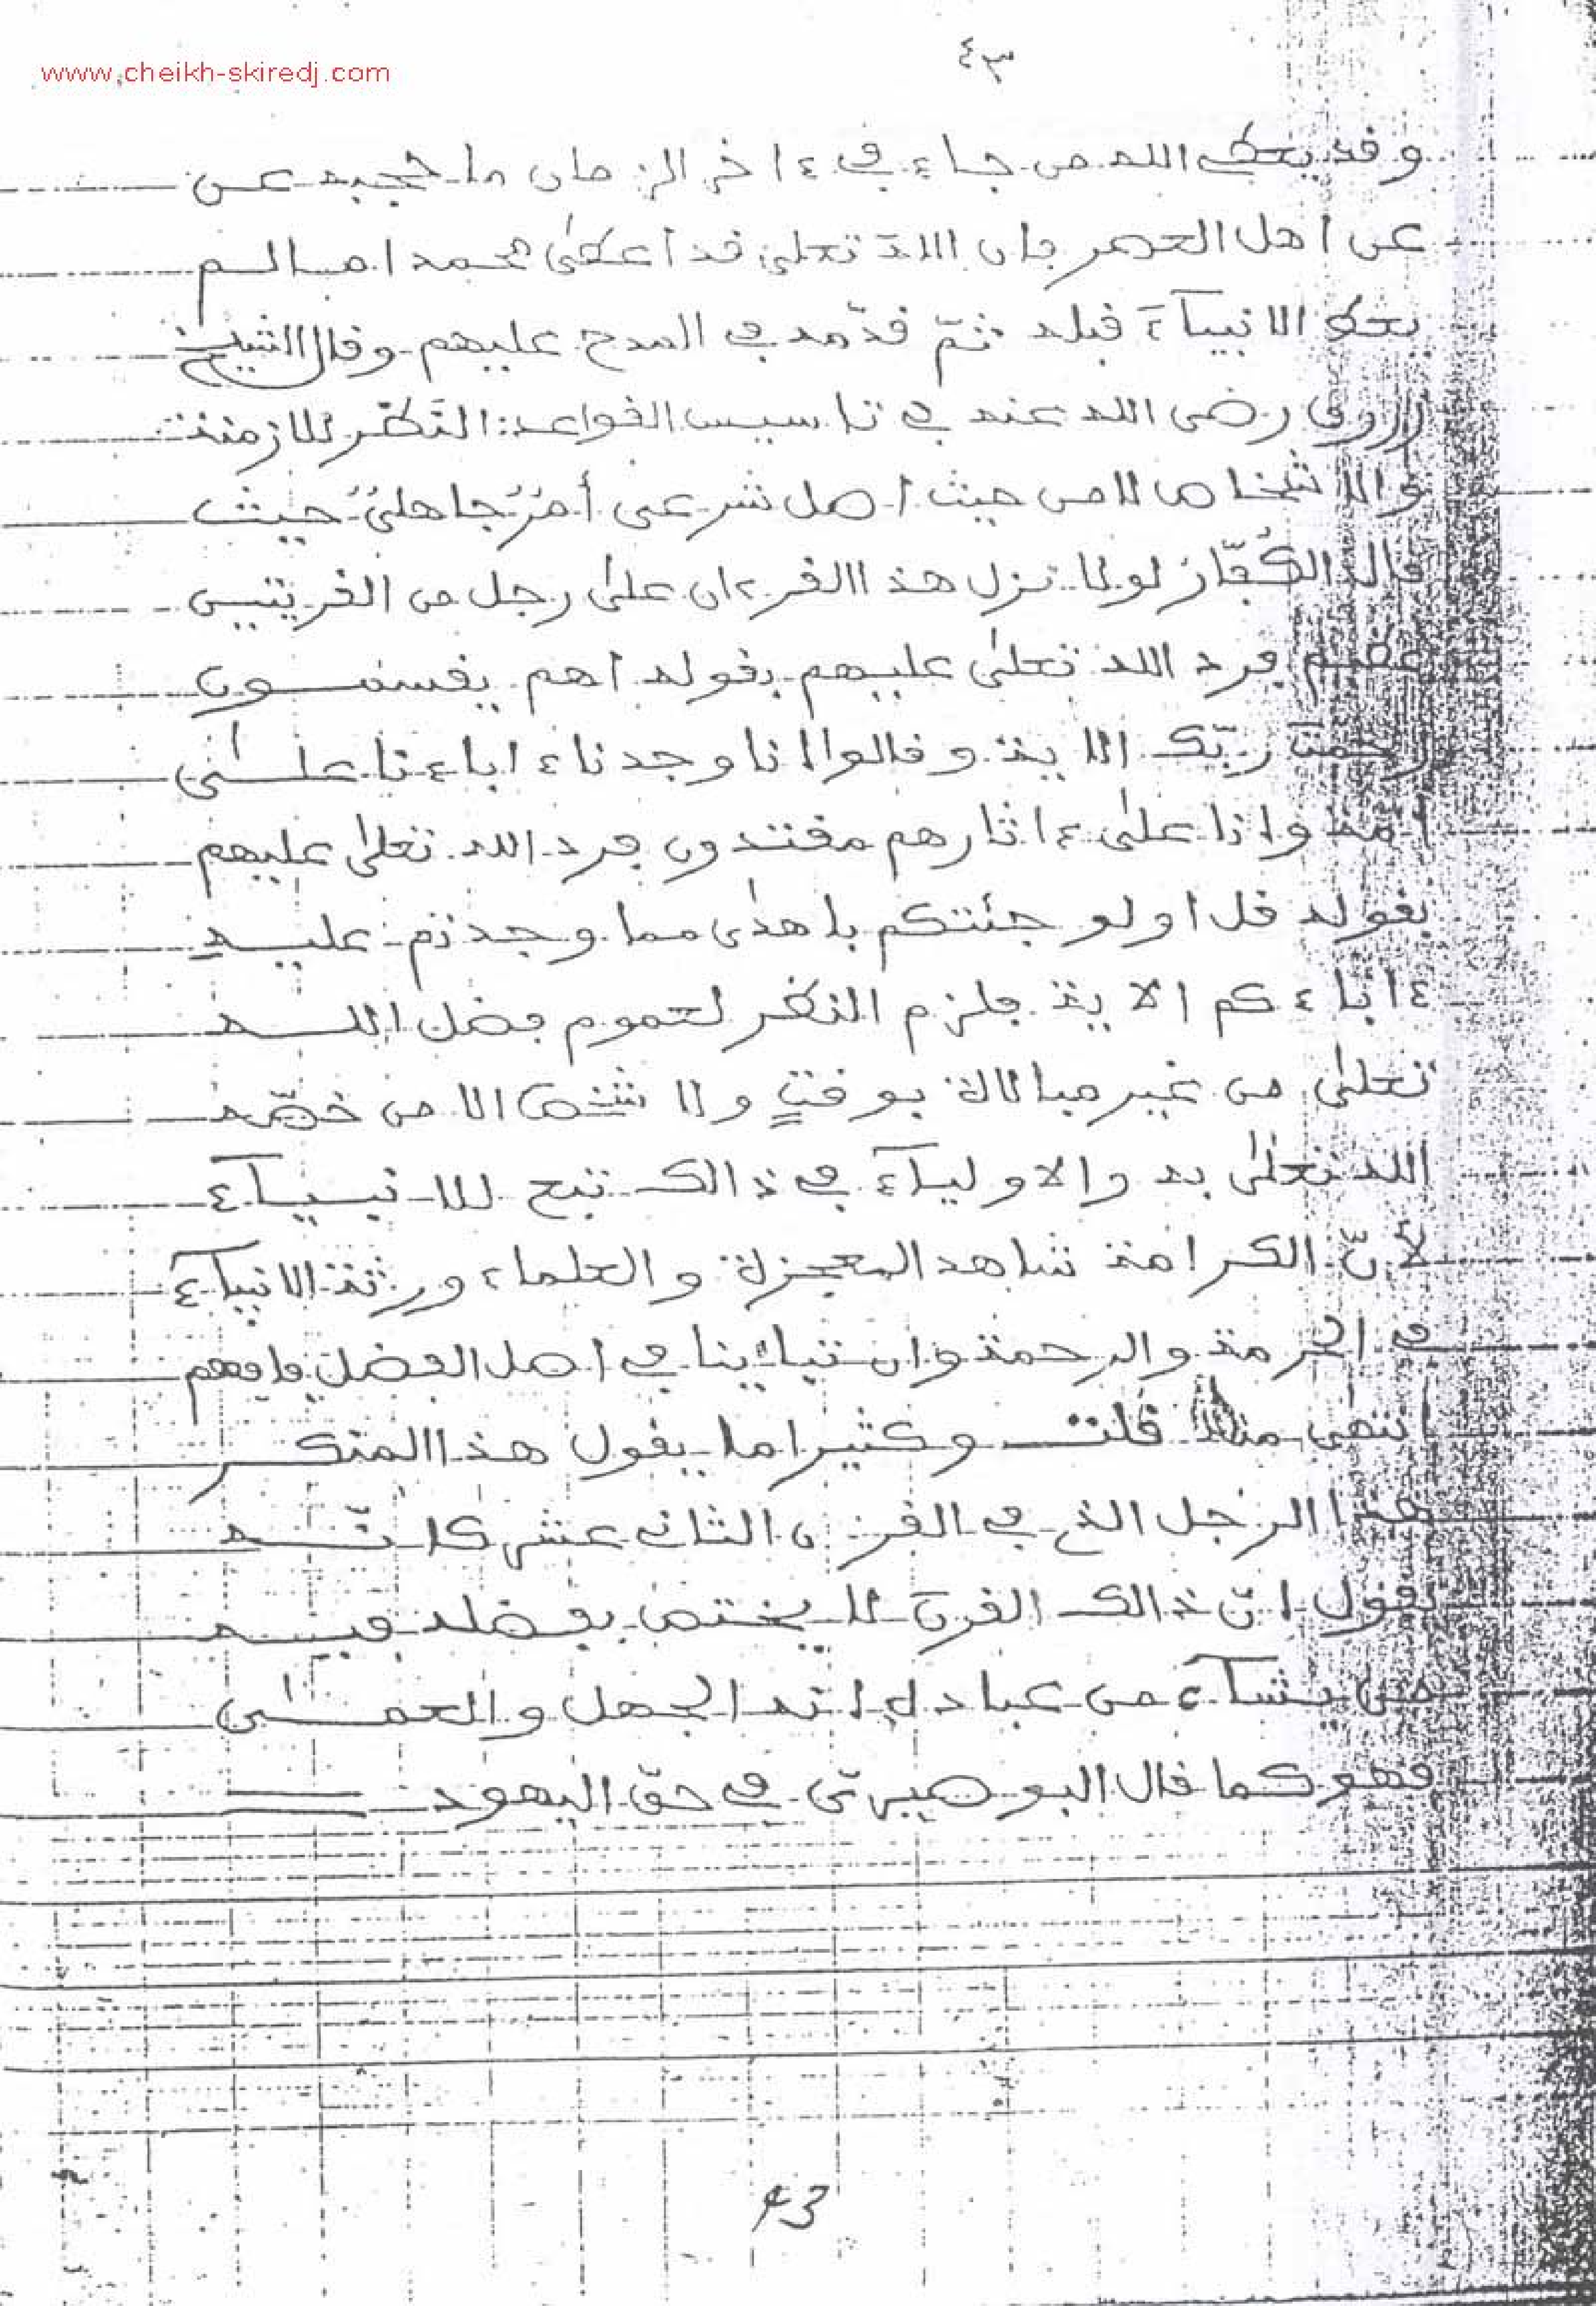 ٤٣
www.cheikh-skiredj.com
وقد يعطي الله من جاء في ءاخر الزمان ما حجبه عن
عن اهل العصر فان الله تعلى قد أعطى محمدا ما لم
يعط الانبيآء قبله ثمّ قدّمه في المدح عليهم وقال الشيخ
زروق رضي الله عنه في تاسيس القواعد: النّظر للازمنة
والاشخاص لا من حيث أصل شرعى أمرٌ جاهلىٌّ حيث
قال الكُفّارُ لولا نزل هذا القرءان على رجل من القريتين
عظيم فرد الله تعلى عليهم بقوله أهم يقسمون
رحمت ربّك الاية وقالوا انا وجدنا ءاباءنا على
أمة وانا على ءاثارهم مقتدون فرد الله تعلى عليهم
بقوله قل اولو جئتكم باهدى مما وجدتم عليه
ءاباءكم الاية فلزم النظر لعموم فضل الله
تعلى من غير مبالاة بوقتٍ ولا شخص الا من خصّه
الله تعلى به والاوليآء في ذالك تبع للانبيآء
لأنّ الكرامة شاهد المعجزة والعلماء ورثة الانبيآء
في الحرمة والرحمة وان تباينا في اصل الفضل فافهم
انتهى منه قلت وكثيرا ما يقول هذا المنكر
هذا الرجل الذي في القرن الثاني عشر كانّه
يقول انّ ذالك القرن لا يختص بفضله فيه
من يشآء من عباده انه الجهل والعمى
فهو كما قال البوصيرىّ في حقّ اليهود
43